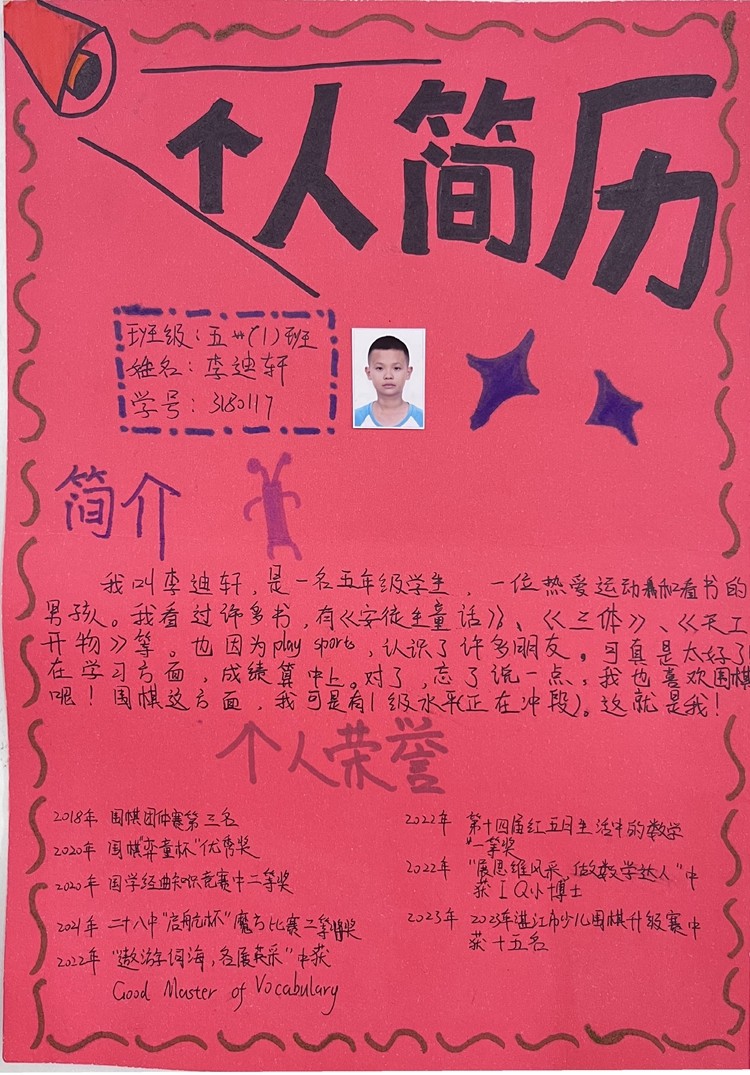 个人简历
班级：五卅(1)班
姓名：李迪轩
学号：3180117
简介
我叫李迪轩，是一名五年级学生，一位热爱运动和看书的
男孩人。我看过许多书，有《安徒生童话》、《三体》、《天工
开物》等。也因为play sports，认识了许多朋友。可真是太好了！
在学习方面，成绩算中上。对了，忘了说一点：我也喜欢围棋
呢！围棋这方面，我可是有1级水平(正在冲段)。这就是我！
个人荣誉
2018年 围棋团体赛第三名
2020年 围棋“弈童杯”优秀奖
2020年 国学经典知识竞赛中二等奖
2021年 二十八中“启航杯”魔方比赛二等奖
2022年 “遨游词海，名展英采”中获
Good Master of Vocabulary
2022年 第十四届红五月生活中的数学
“一等奖
2022年 “展思维风采，做数学达人”中
获IQ小博士
2023年 2023年湛江市少儿围棋升级赛中
获十五名